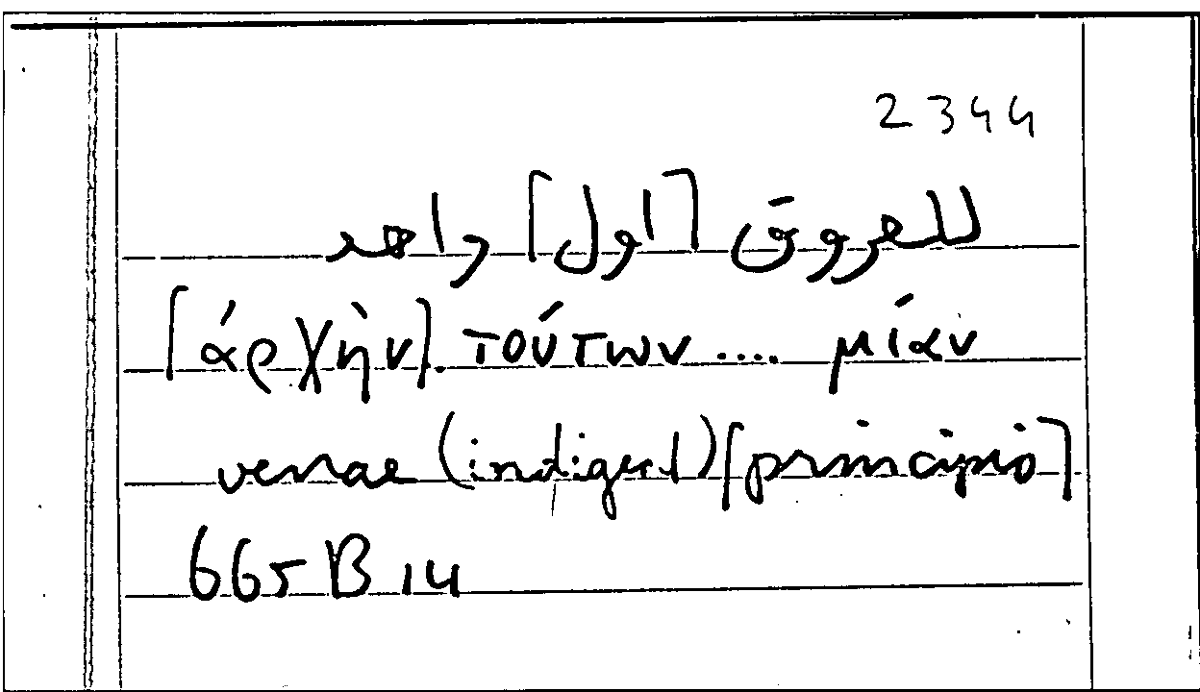 2344
للعروق [اول] واحد
[ἀρχὴν]. τούτων .... μίαν
venae (indigent) [principio]
665 B 14